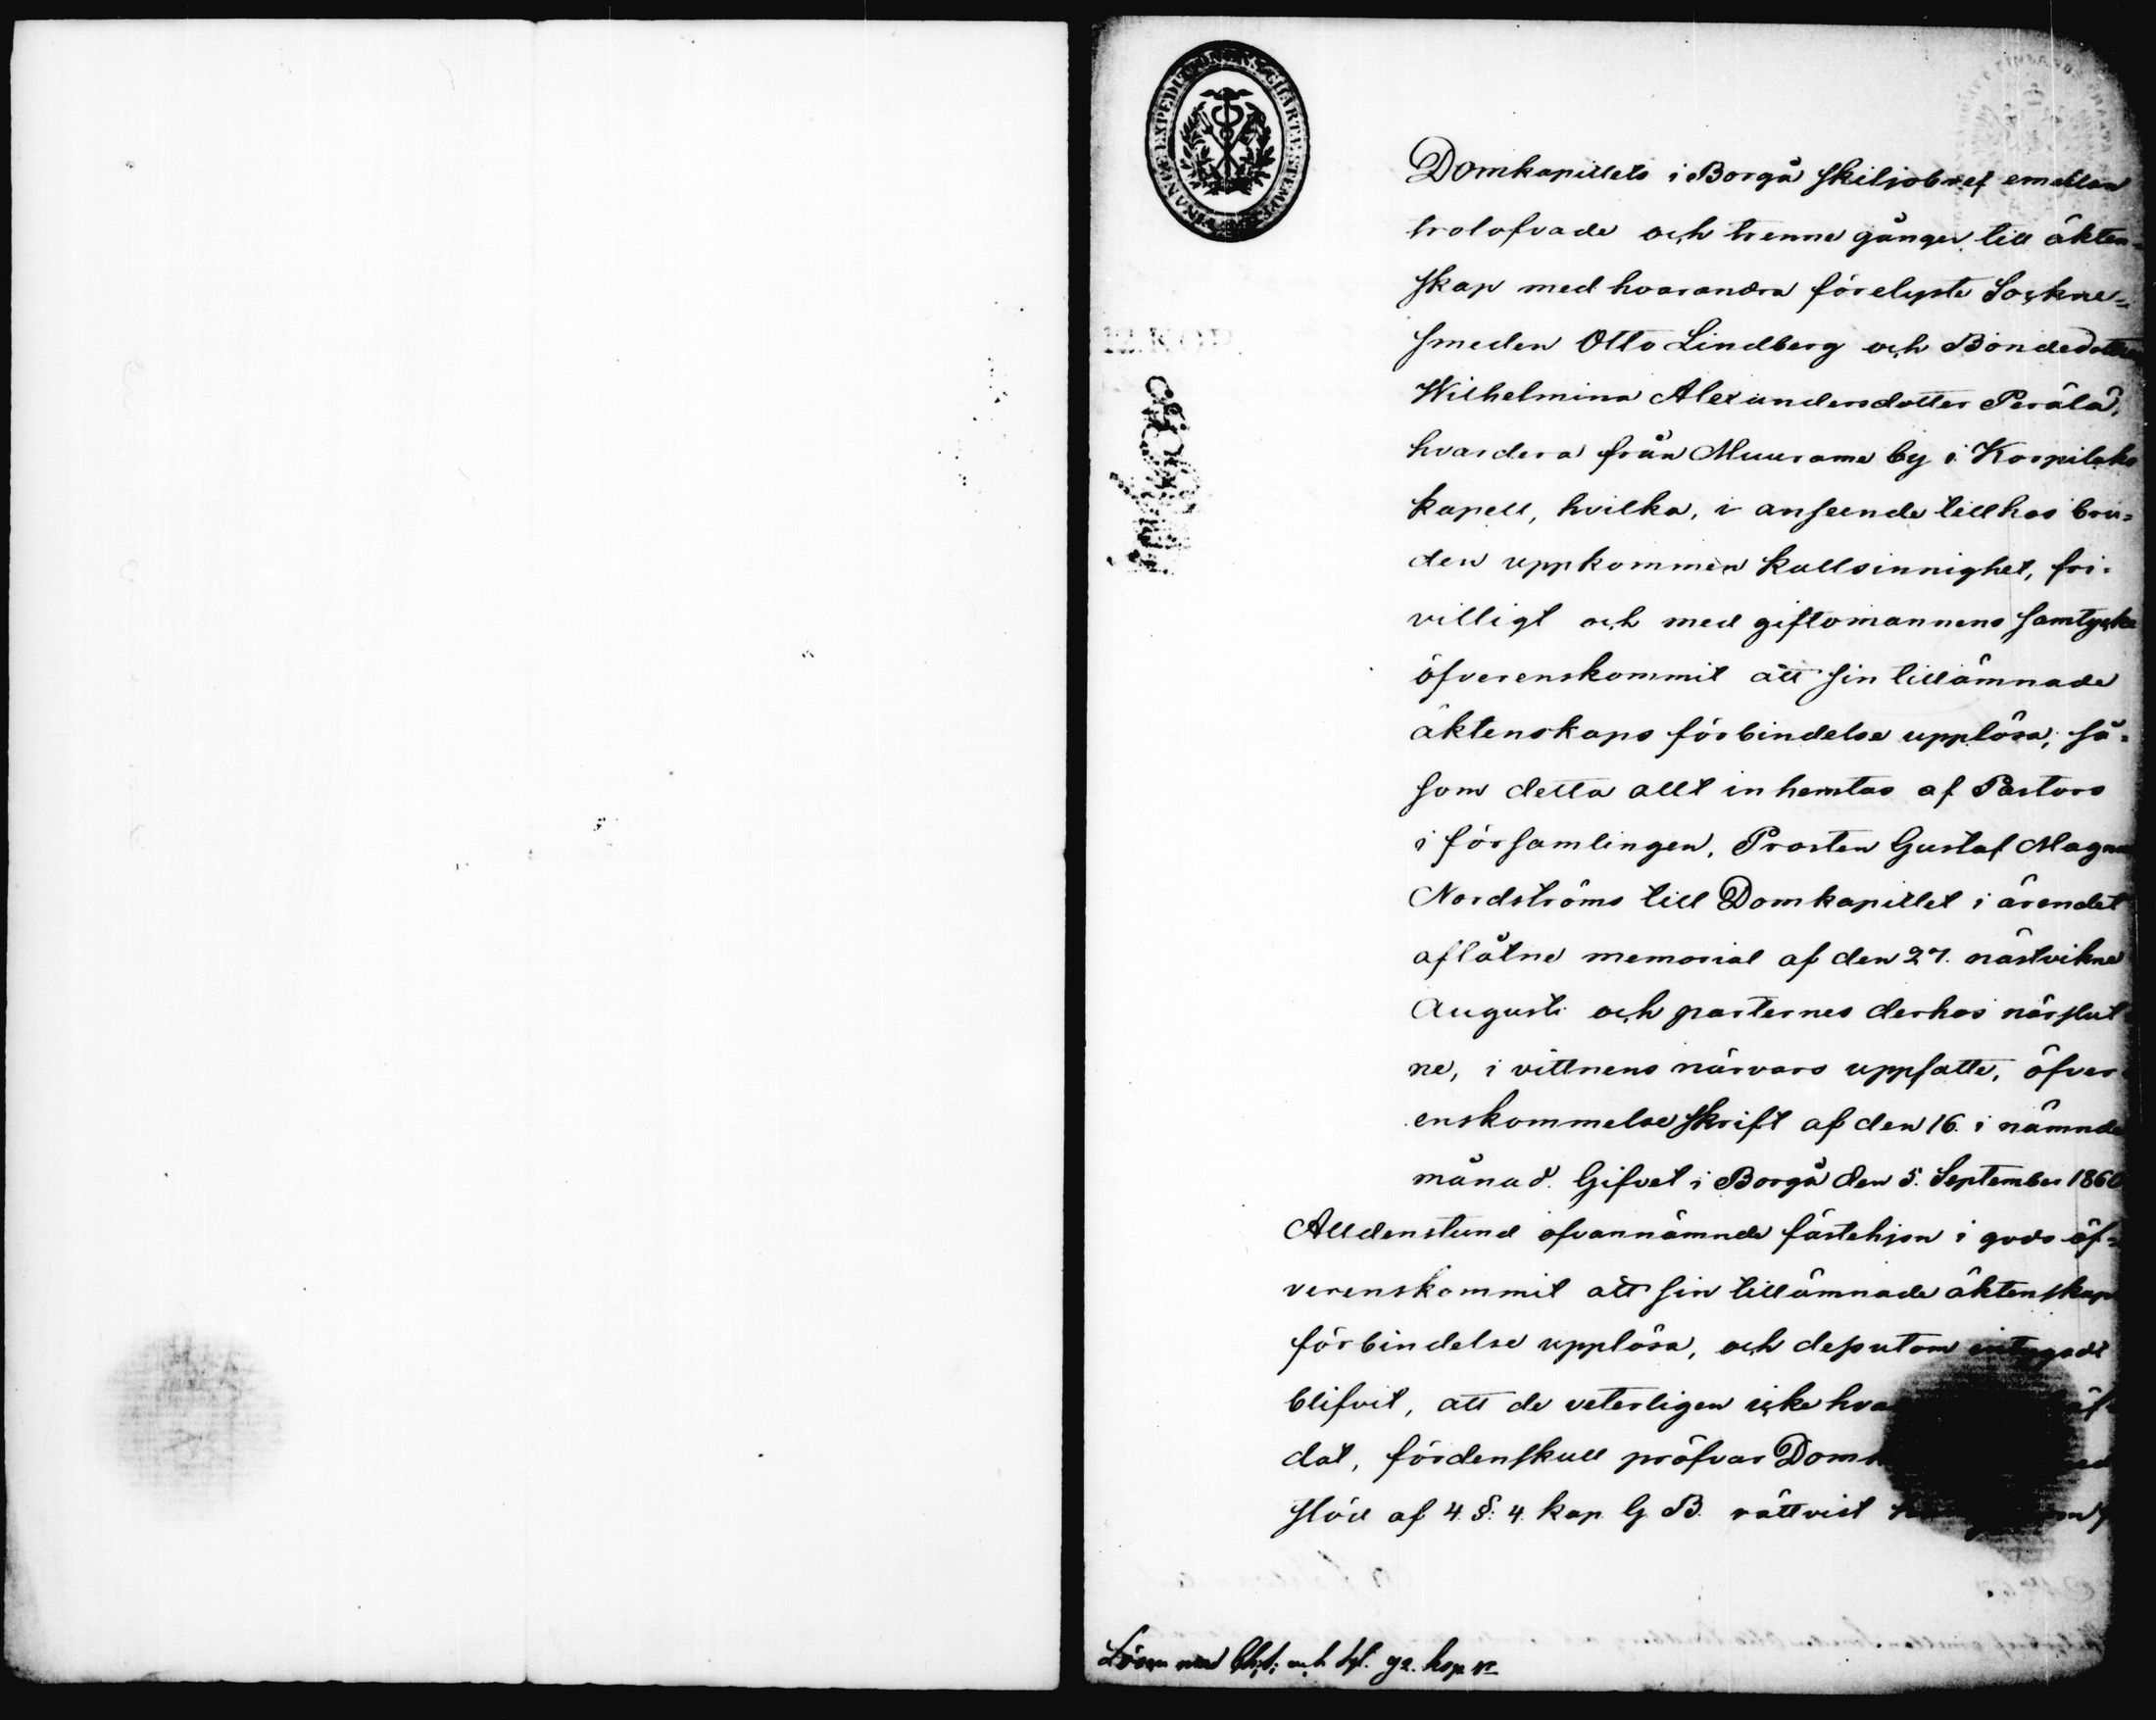 FINANCE EXPEDITIONENS CHARTÆ STEMPEL
Domkapitlets i Borgå skiljobref emellan
trolofvade och trenne gånger till äkten=
skap med hvarandra förelyste Sockne=
smeden Otto Lindberg och Bondedottren
Wilhelmina Alexandersdotter Perälä,
hvardera från Muurame by i Korpilaks
kapell, hvilka, i anseende till hos bru=
den uppkommen kallsinnighet, fri=
villigt och med giftomannens samtycke
öfverenskommit att sin tillämnade
äktenskaps förbindelse upplösa; så=
som detta allt inhemtas af Pastors
i församlingen, Prosten Gustaf Magnus
Nordströms till Domkapitlet i ärendet
aflåtne memorial af den 27. nästvikne
Augusti och parternes derhos närslut
ne, i vittnens närvaro uppsatte, öfver
enskommelse skrift af den 16. i nämnde
månad. Gifvet i Borgå den 5. September 1860
Alldenstund ofvannämnde fästehjon i godo öf=
verenskommit att sin tillämnade äktenskaps
förbindelse upplösa, och dessutom intygadt
blifvit, att de veterligen icke hva
dat, fördenskull pröfvar Domk
stöd af 4. §. 4. kap. G. B. rättvist
Lösen med Chts: och Sgl. 92. kop. Sr